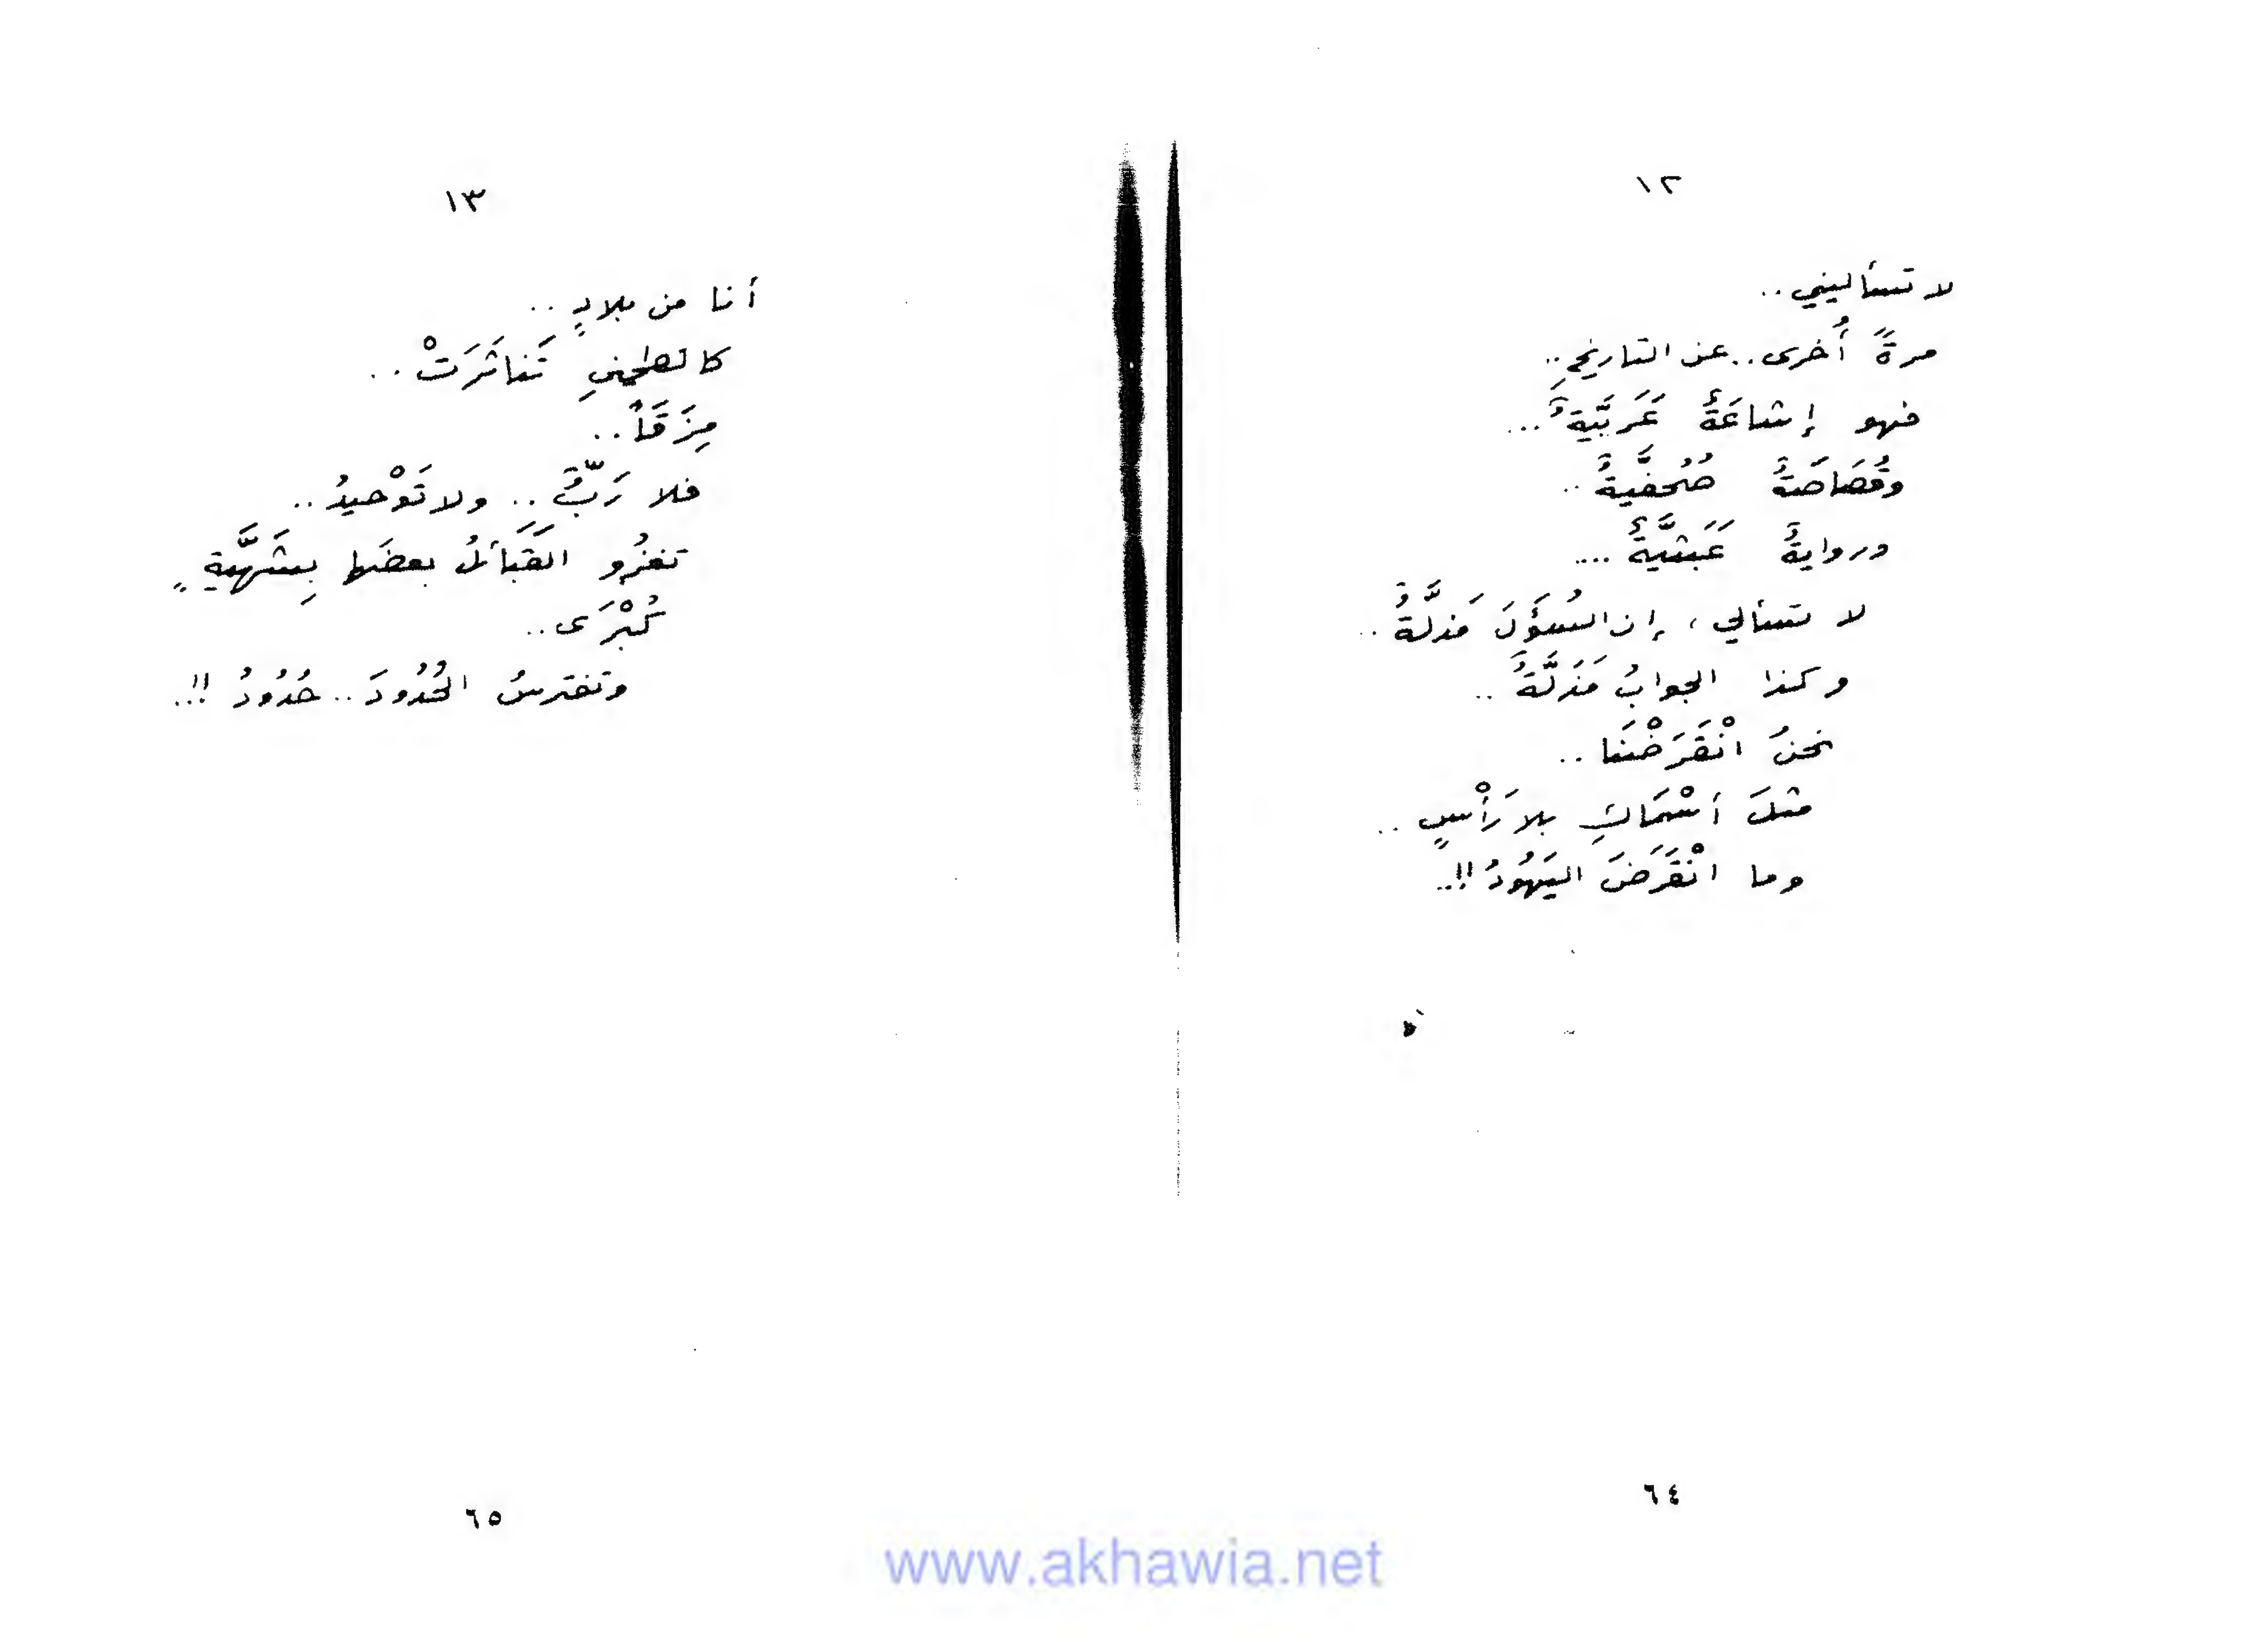 ١٢
لا تسأليني..
مرةً أُخرى.. عن التاريخِ..
فهو إشاعَةٌ عَرَبيَّةٌ...
وقُصَاصَةٌ صُحُفيَّةٌ..
وروايةٌ عَبَثيَّةٌ....
لا تسألي، إن السُؤَالَ مَذلَّةٌ..
وكذا الجوابُ مَذَلَّةٌ..
نحنُ انْقَرَضْنَا..
مثلَ أسْمَاكٍ بلا رَأْسٍ..
وما انْقَرَضَ اليَهُودُ!!..
٦٤
١٣
أنا من بلادٍ..
كالطحينِ تَنَاثَرَتْ..
مِزَقَاً..
فلا رَبٌّ.. ولا تَوْحيدُ..
تغزُو القَبَائلُ بعضَها بِشَهيَّةٍ
كُبْرَى..
وتفترسُ الحُدُودَ.. حُدُودُ!!..
٦٥
www.akhawia.net